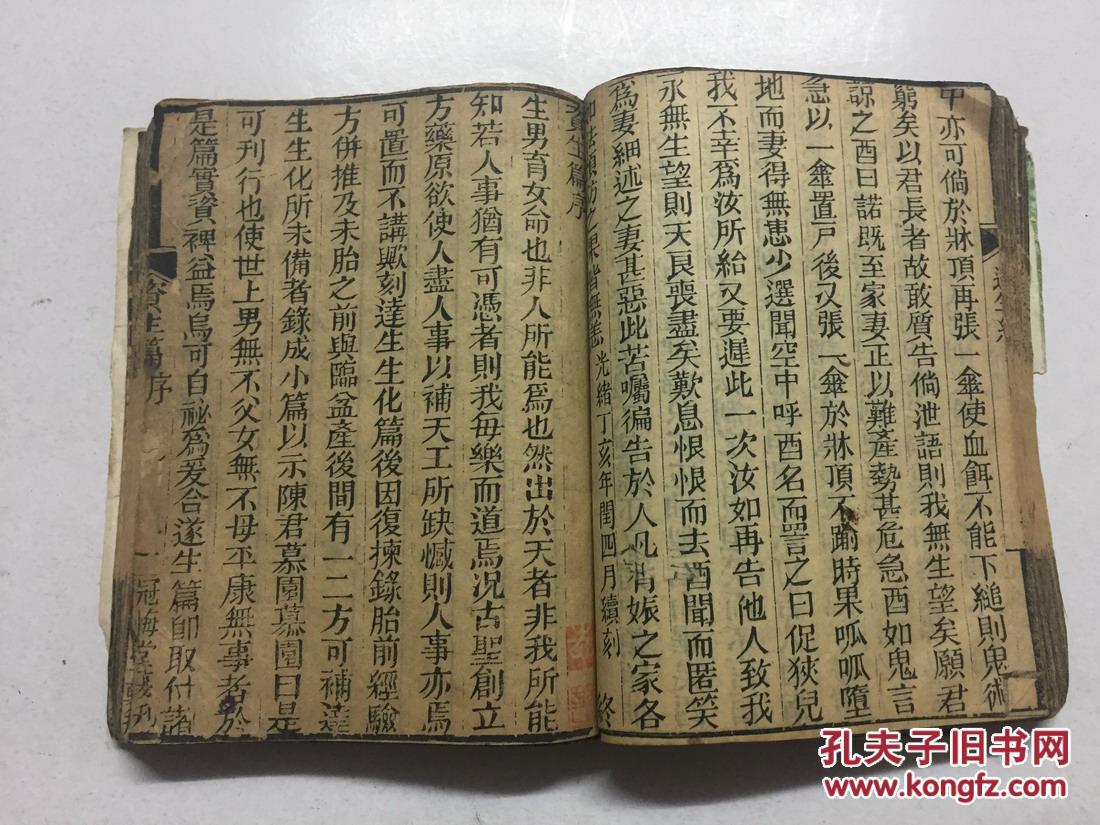 中亦可倘於牀頂再張一傘使血餌不能下縋則鬼術
窮矣以君長者故敢質告倘泄語則我無生望矣願君
諒之酉曰諾既至家妻正以難產勢甚危急酉如鬼言
急以一傘置戸後又張一傘於牀頂不踰時果呱呱墮
地而妻得無恙少選聞空中呼酉名而詈之曰促狹兒
我不幸爲汝所給又要遲此一次汝如再告他人致我
永無生望則天良喪盡矣歎息恨恨而去酉聞而匿笑
爲妻細述之妻甚惡此苦囑徧告於人凡有娠之家各
如法預防之果皆無恙 光緒丁亥年閏四月續刻 終
資生篇序
生男育女命也非人所能爲也然出於天者非我所能
知若人事猶有可憑者則我毎樂而道焉况古聖創立
方藥原欲使人盡人事以補天工所缺憾則人事亦焉
可置而不講歟刻達生生化篇後因復揀錄胎前經驗
方併推及未胎之前與臨盆產後間有一二方可補達
生生化所未備者錄成小篇以示陳君慕園慕園曰是
可刊行也使世上男無不父女無不母平康無事者於
是篇實資裨益焉烏可自祕爲爰合遂生篇卽取付諸
資生篇 序
一
冠悔堂
孔夫子旧书网
www.kongfz.com